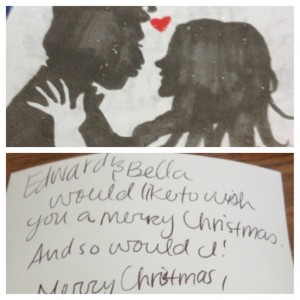 Edward & Bella
would like to wish
you a merry Christmas.
And so would I!
Merry Christmas,